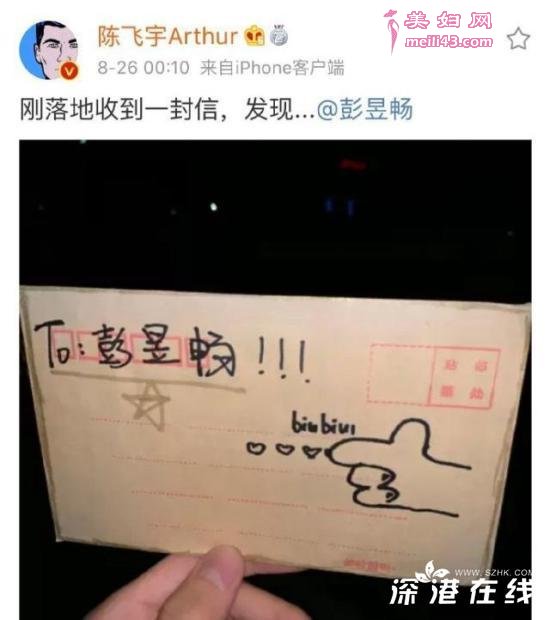 陈飞宇Arthur
美妇网
meili43.com
8-26 00:10 来自iPhone客户端
刚落地收到一封信，发现...@彭昱畅
To:彭昱畅!!!
biubiu
WWW.SZHK.COM
深港在线